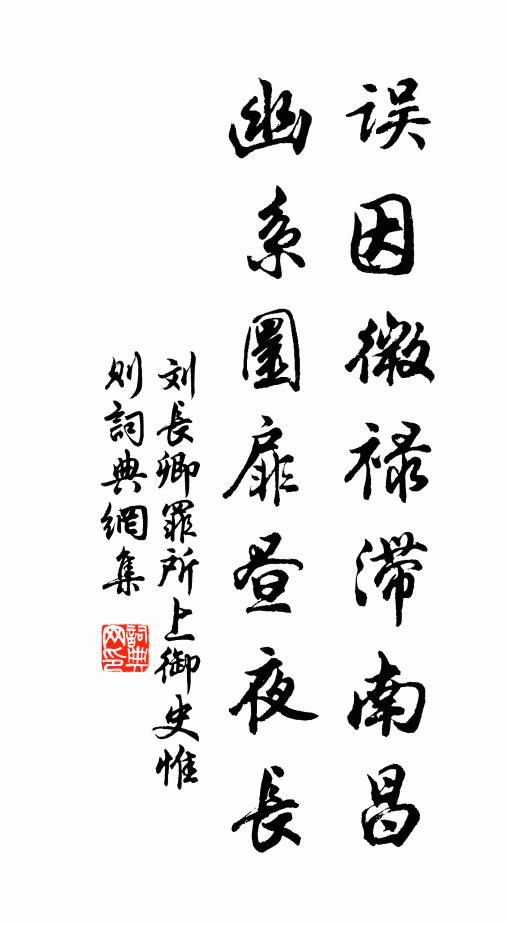 误因微禄滞南昌
幽系圜扉昼夜長
刘長卿罪所上御史惟
则詞典網集
詞典
网印